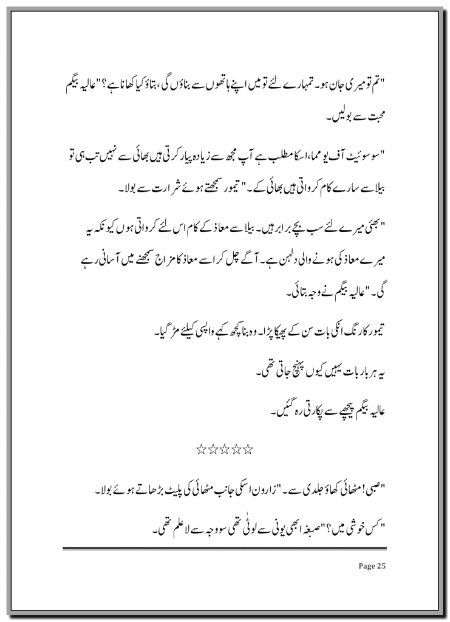 "تم تو میری جان ہو۔ تمہارے لئے تو میں اپنے ہاتھوں سے بناؤں گی، بتاؤ کیا کھانا ہے؟" عالیہ بیگم
محبت سے بولیں۔
"سو سوئیٹ آف یو مما، اسکا مطلب ہے آپ مجھ سے زیادہ پیار کرتی ہیں بھائی سے نہیں تب ہی تو
بیلا سے سارے کام کرواتی ہیں بھائی کے۔" تیمور سمجھتے ہوئے شرارت سے بولا۔
"بھئی میرے لئے سب بچے برابر ہیں۔ بیلا سے معاذ کے کام اس لئے کرواتی ہوں کیونکہ یہ
میرے معاذ کی ہونے والی دلہن ہے۔ آگے چل کر اسے معاذ کا مزاج سمجھنے میں آسانی رہے
گی۔" عالیہ بیگم نے وجہ بتائی۔
تیمور کا رنگ انکی بات سن کے پھیکا پڑا۔ وہ بنا کچھ کہے واپسی کیلئے مڑ گیا۔
یہ ہر بار بات یہیں کیوں پہنچ جاتی تھی۔
عالیہ بیگم پیچھے سے پکارتی رہ گئیں۔
☆☆☆☆☆
"صبی! مٹھائی کھاؤ جلدی سے۔" زارون اسکی جانب مٹھائی کی پلیٹ بڑھاتے ہوئے بولا۔
"کس خوشی میں؟" صبغہ ابھی یونی سے لوٹی تھی سو وجہ سے لاعلم تھی۔
Page 25